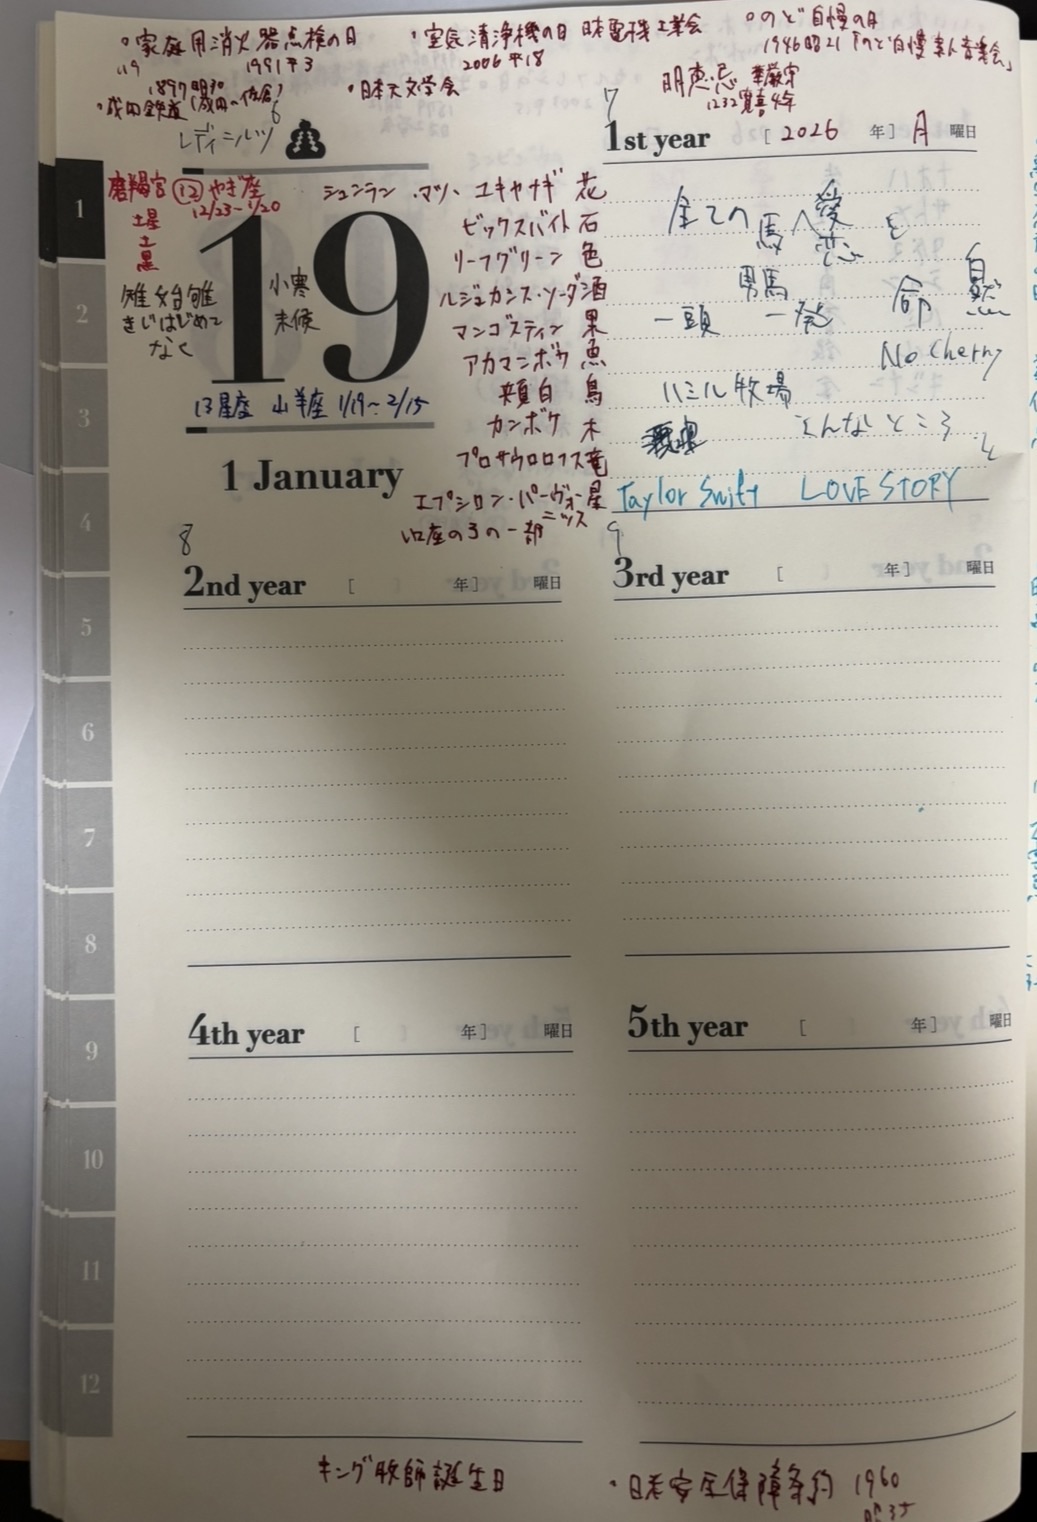 ・家庭用消火器点検の日
119 1991平3
・空気清浄機の日 日本電機工業会
2006平18
・のど自慢の日
1946昭21「のど自慢素人音楽会」
1897明30
・成田鉄道(成田〜佐倉)
・日本天文学会
明恵忌 華厳宗
1232寛喜4年
6
レディーニルツ
7
1st year [2026 年] 月曜日
磨羯宮 ⑫やぎ座
12/23〜1/20
土星
土
黒
雉始雊
きじはじめて
なく
19
小寒
末候
13星座 山羊座 1/19〜2/15
1 January
シュンラン・マツ、ユキヤナギ 花
ビックスバイト 石
リーフグリーン 色
ルジェカシス・ソーダ 酒
マンゴスティン 果
アカマンボウ 魚
頬白 鳥
カンボケ 木
プロサウロロフス 竜
エプシロン・パーヴォーニッス 星
全ての馬へ愛を
恋
男馬
一頭 一発 命 自然
No Cherry
ハミル牧場
こんなところ
Taylor Swift LOVE STORY
8
2nd year [ 年] 曜日
9
3rd year [ 年] 曜日
4th year [ 年] 曜日
5th year [ 年] 曜日
1
2
3
4
5
6
7
8
9
10
11
12
キング牧師誕生日
・日米安全保障条約 1960
昭35